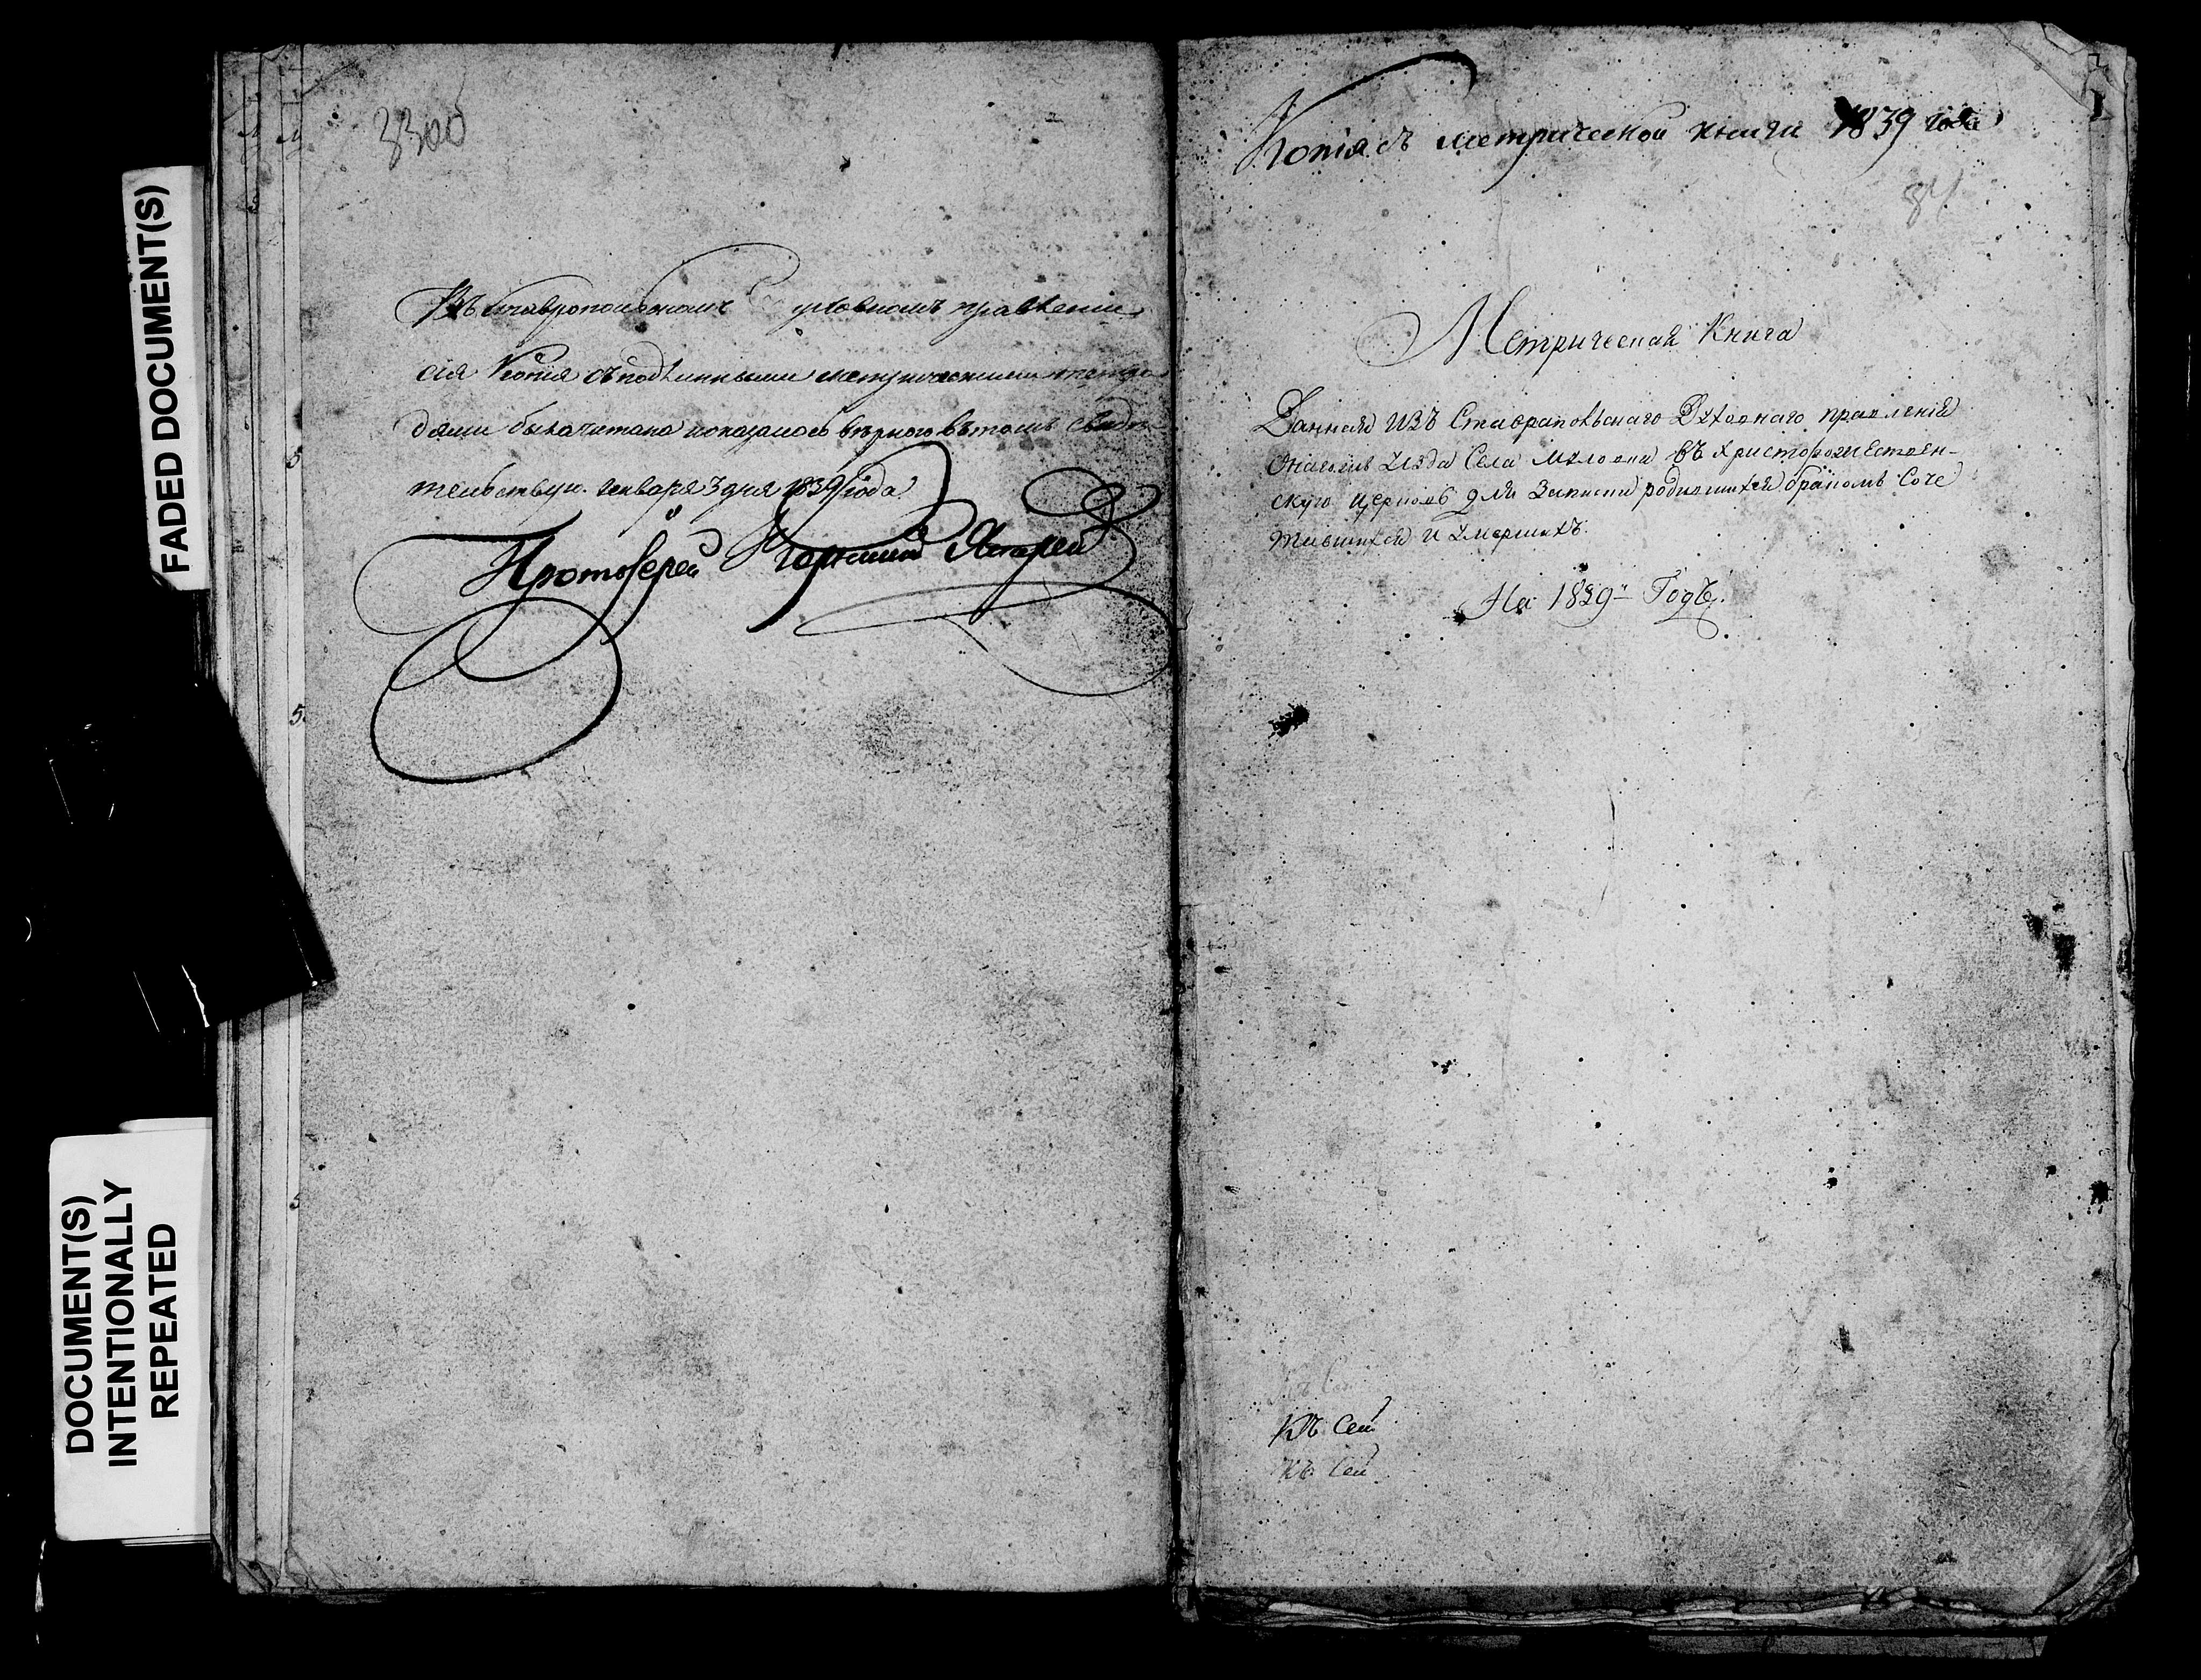 FADED DOCUMENT(S)
DOCUMENT(S)
INTENTIONALLY
REPEATED
3300
Въ Ставропольскомъ Духовномъ правленіи
сія Копія съ подлинными метрическими тетра
дями была читана и оказалось вѣрною въ томъ свидѣ-
тельствую. Генваря 3 дня 1839 года
Протоіерей
Копія съ метрической книги 1839 года
84
Метрическая Книга
Данная изъ Ставрапольскаго Духовнаго правленія
уѣзда Села въ Христорождествен-
скую церковь для Записки родившихся бракомъ Соче
тавшихся и умершихъ.
На 1839й Годъ.
Къ Сей
Къ Сей